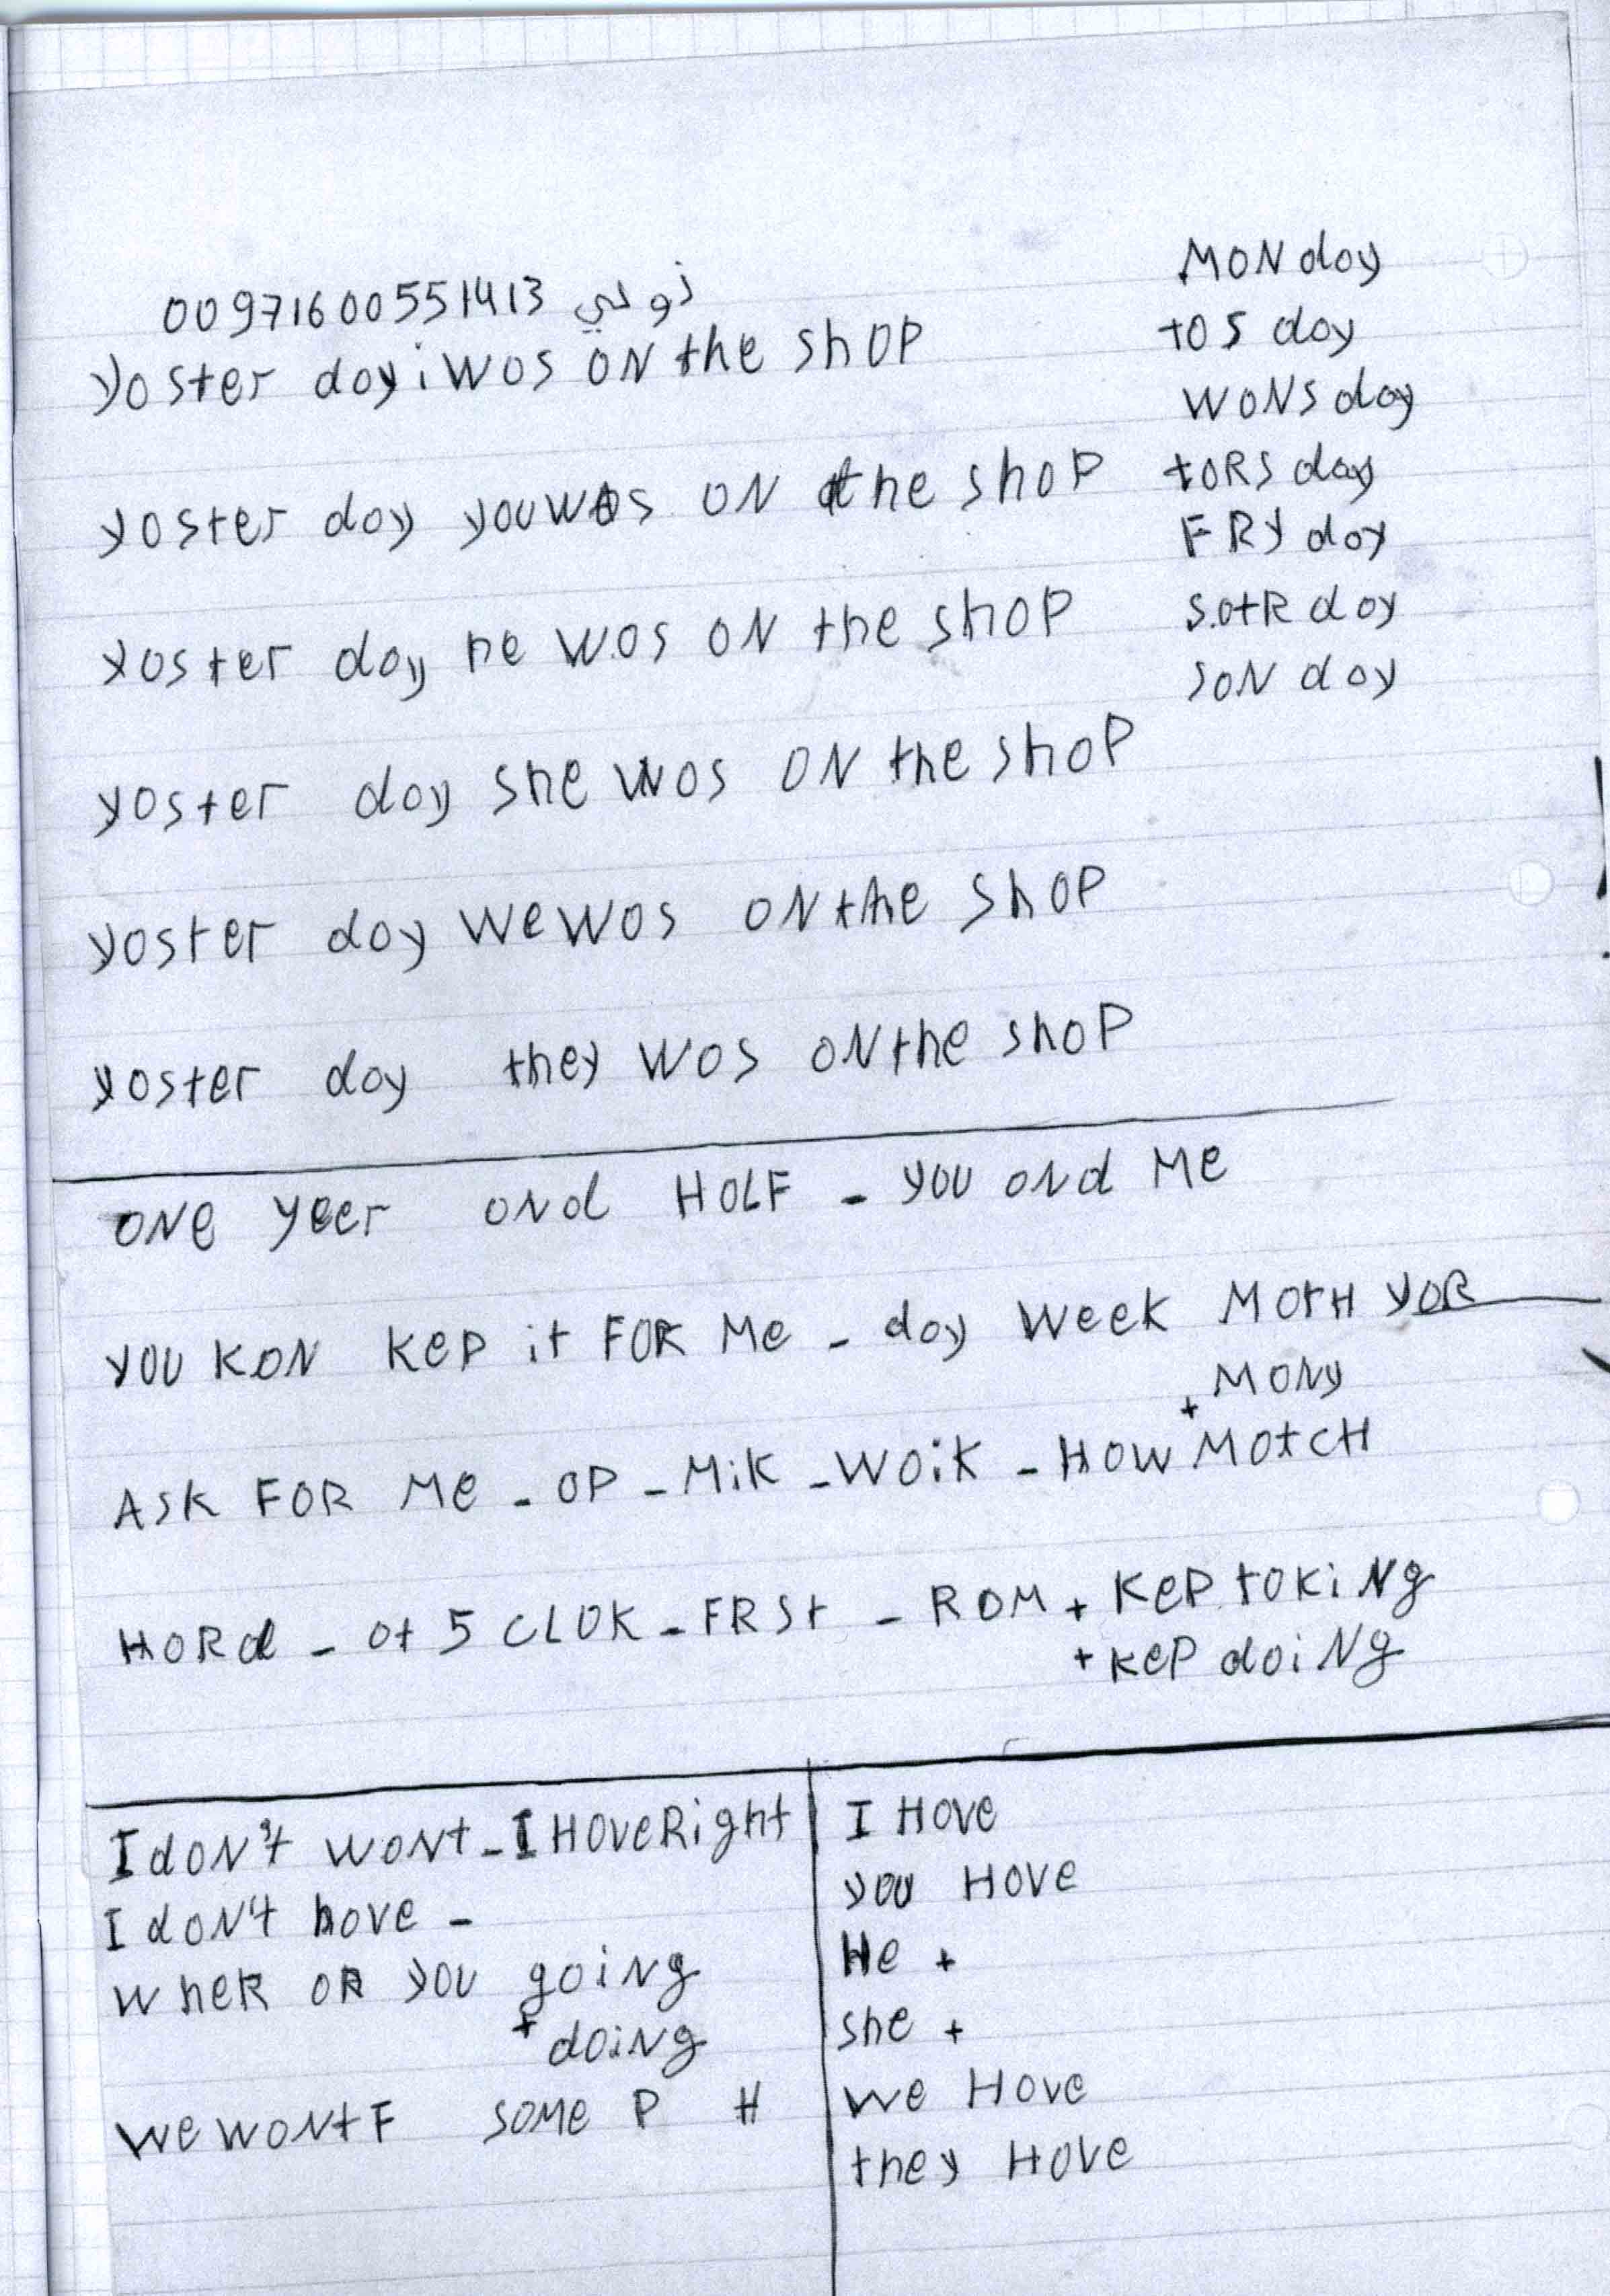 00971600551413 زولي
yoster doy i wos ON the shOP
yoster doy you wos ON the shoP
yoster doy he wos ON the shoP
yoster doy she wos ON the shoP
yoster doy we wos ON the ShOP
yoster doy they wos ON the shoP
MON doy
tOS doy
WONS doy
tORS doy
FRY doy
S.otR doy
SON doy
ONe yeer oNd HOLF - YOU oNd Me
YOU KON KeP it FOR Me - doy week MOtH YOR
+ MONy
ASK FOR Me - OP - MiK - WOiK - HOW MOtCH
HORd - Ot 5 CLOK - FRSt - ROM + KeP tOKiNg
+ KeP doiNg
I dON't WONt - I HOVe Right
I dON't hove -
WheR OR YOU goiNg
+ doiNg
We WONt F SOMe P H
I HOVe
you HOVe
He +
she +
We HOVe
they HOVe